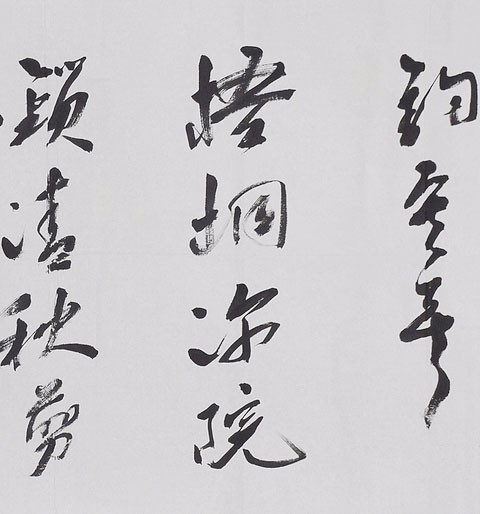 鈎寂寞
梧桐深院
鎖清秋剪